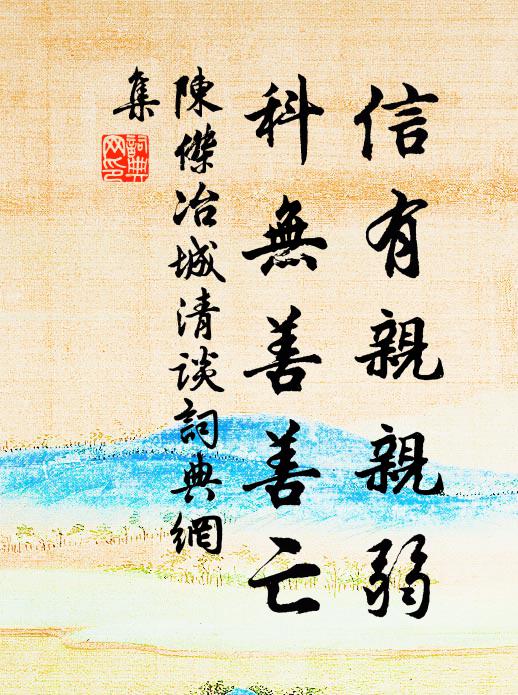 信有親親弱
科無善善亡
陳傑冶城清談詞典網
集
詞典网印